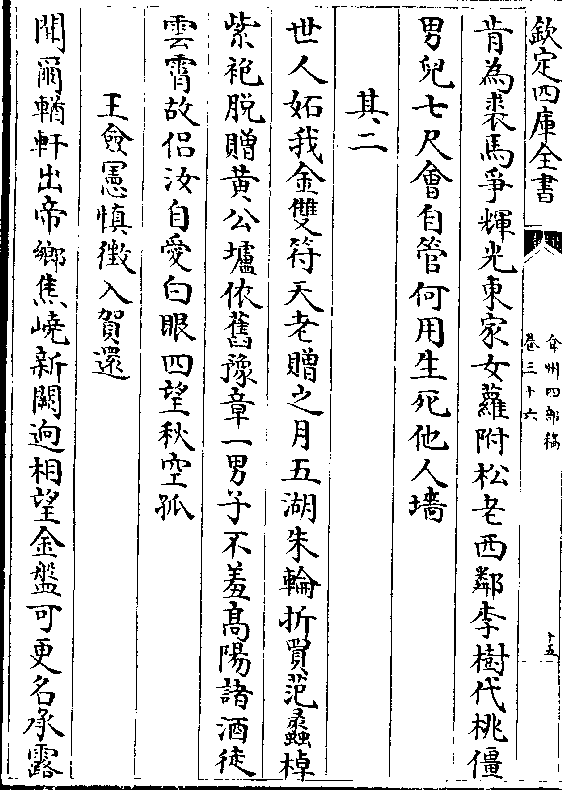 欽定四庫全書
弇州四部稿
卷三十六
十五
肯為裘馬爭輝光東家女蘿附松老西鄰李樹代桃僵
男兒七尺會自管何用生死他人墻
其二
世人妬我金雙符天老贈之月五湖朱輪折買范蠡棹
紫袍脱贈黄公壚依舊豫章一男子不羞髙陽諸酒徒
雲霄故侣汝自愛白眼四望秋空孤
王僉憲慎徴入賀還
聞爾輶軒出帝鄉焦嶢新闕逈相望金盤可更名承露